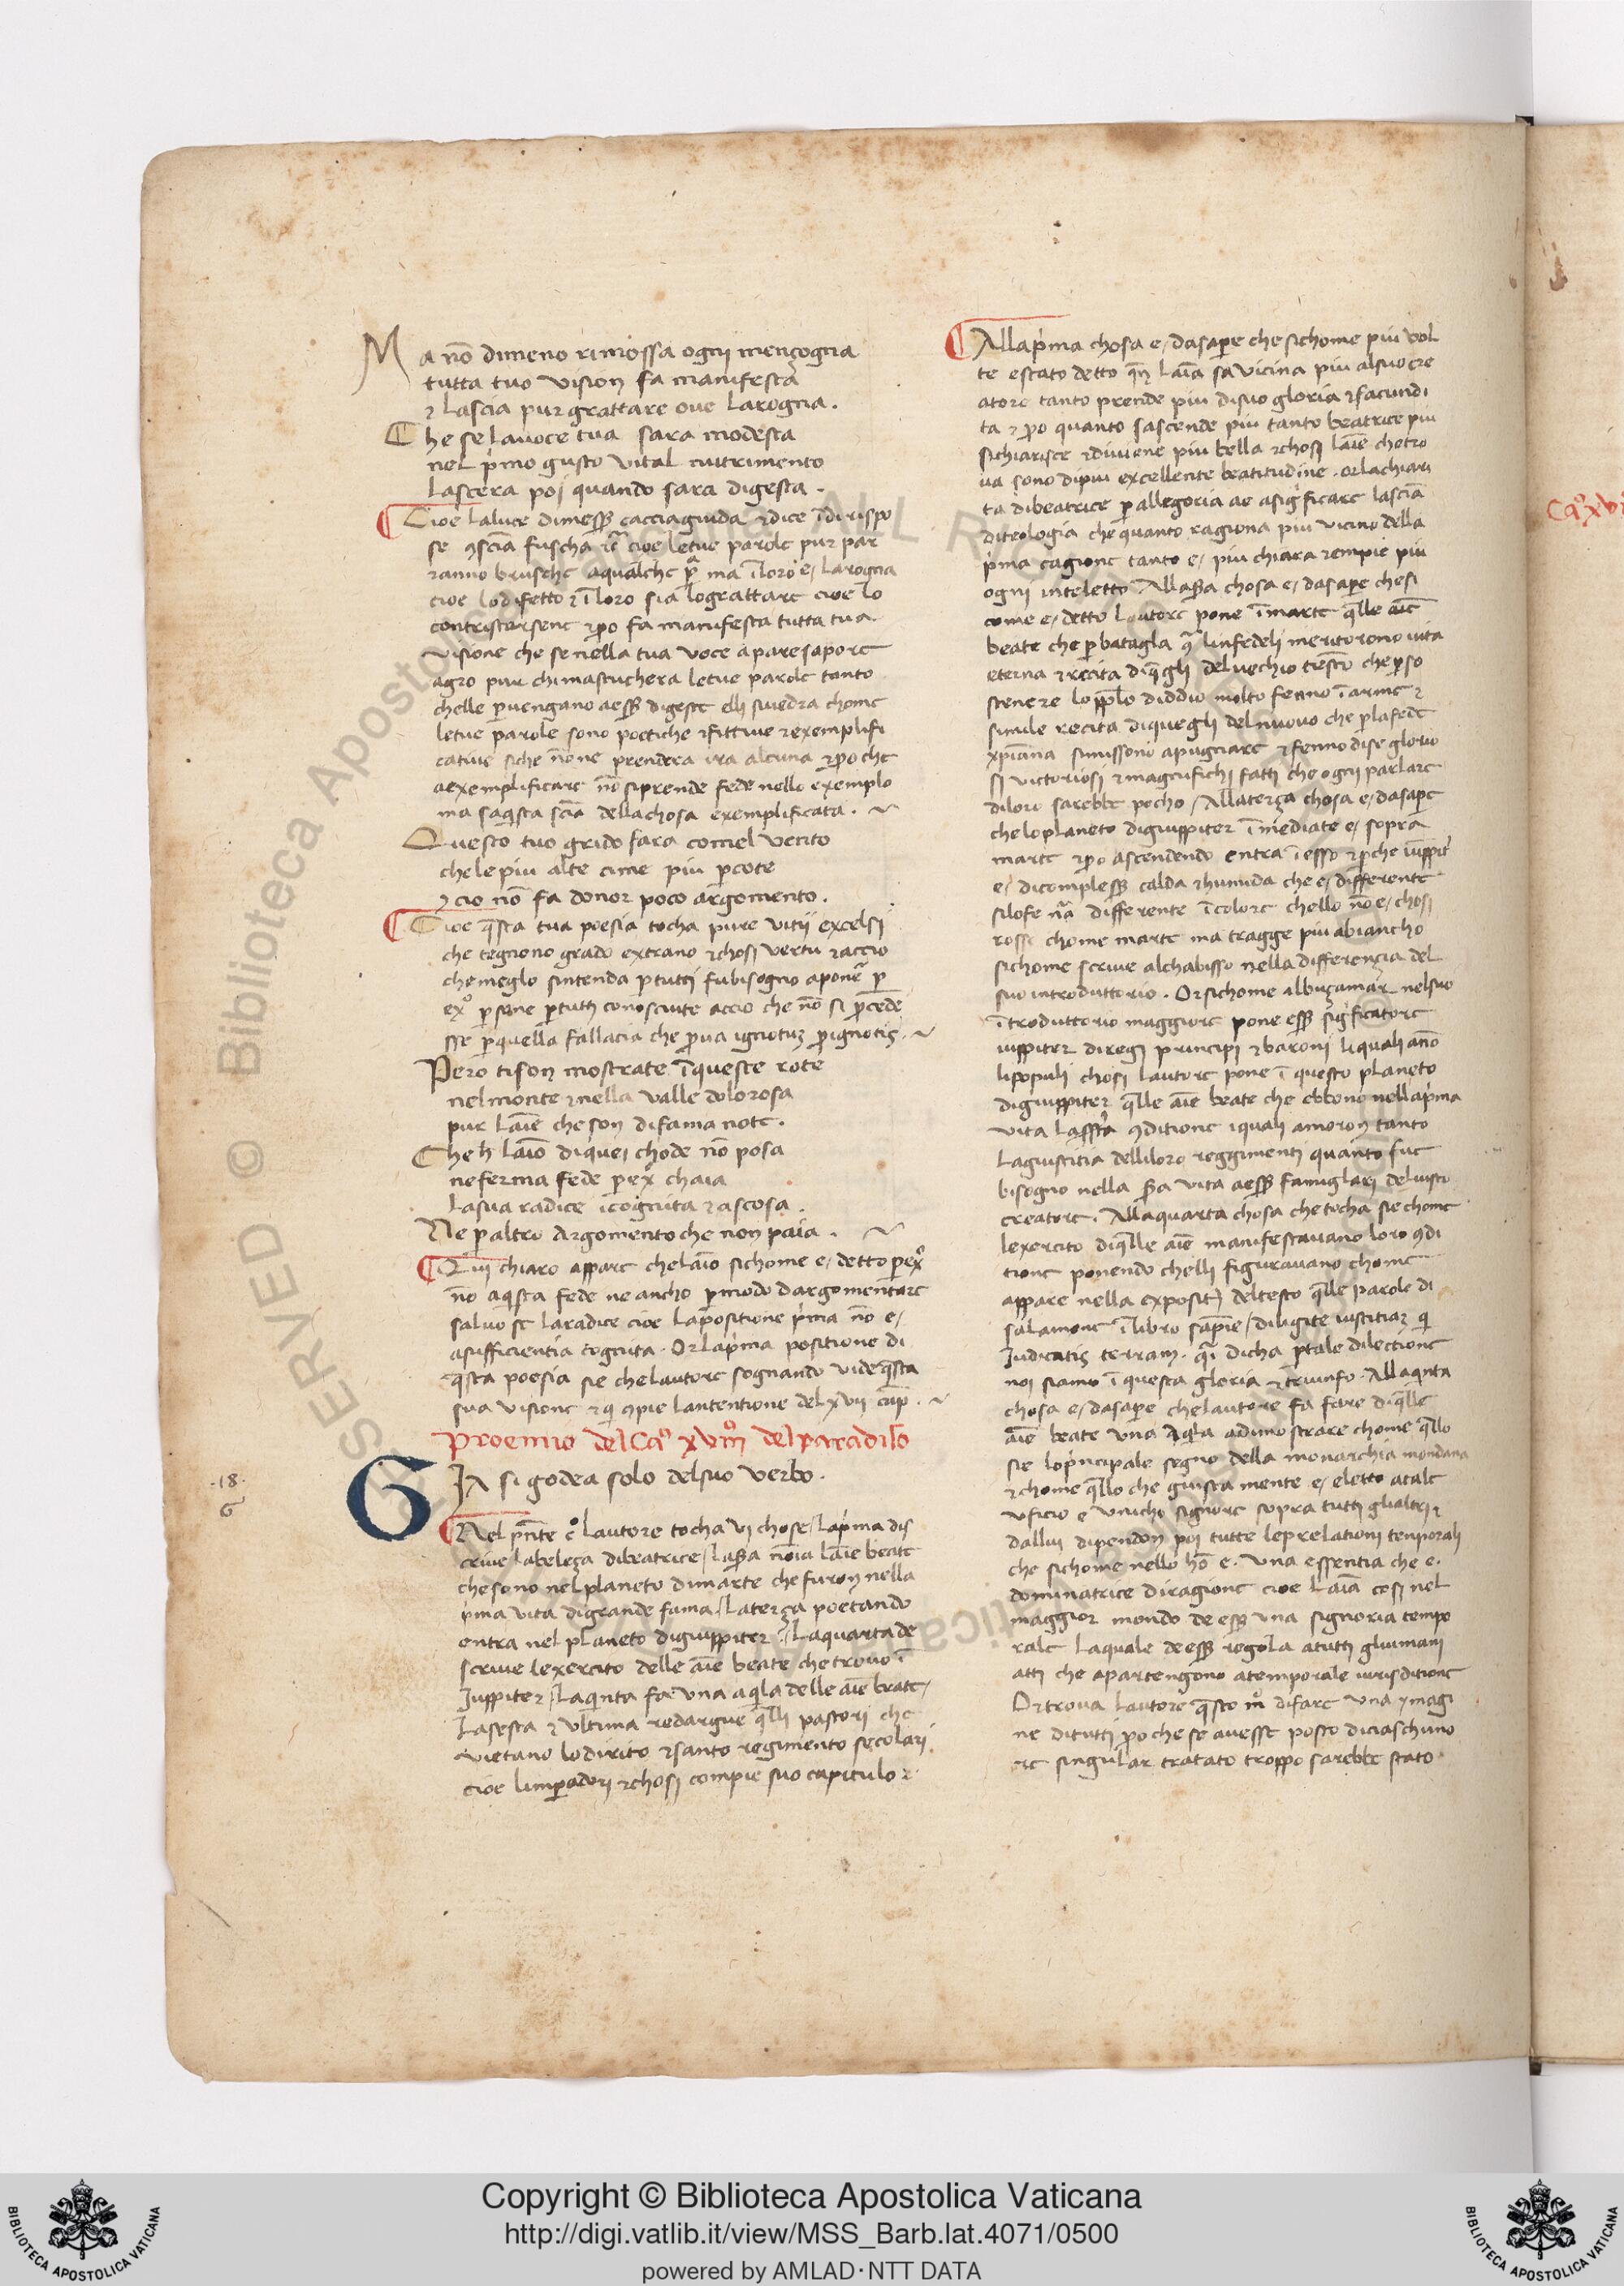 Ma nõ dimeno rimossa ogni mençogna
tutta tuo vision fa manifesta
⁊ lascia pur grattare oue larogna.
Che se lauoce tua sara modesta
nel pͥmo gusto vital nutrimento
lascera poi quando sara digesta.
Cioe laluce dimeſſ cacciaguida ⁊dice
ranno brusche aqualche ma ĩloro e/ larogna
cioe lodifetto ⁊ ĩloro sia lograttare cioe lo
contristarsene ⁊ꝑo fa manifesta tutta tua
visione che senella tua voce apare sapore
agro pur chi mastichera letue parole tanto
letue parole sono poetiche ⁊fittiue ⁊exemplifi
catiue siche nõne prendera ira alcuna ⁊ꝑo che
aexemplificare nõ siprende fede nello exemplo
ma saq̃sta dellachosa exemplificata.
Questo tuo grido fara comel vento
chele piu alte cime piu ꝑcote
⁊ cio nõ fa donor poco argomento.
Cioe q̃sta tua poesia tocha pure vitij excelsi
che tegnono grado extrano ⁊chosi vertu ⁊accio
chemeglo sintenda ꝑtutti fubisogno
sse ꝑquella fallacia che ꝑua ignotuz ꝑignotis.
Pero tison mostrate ĩqueste rote
nelmonte ⁊nella valle dolorosa
pur laĩe che son difama note.
Che laĩo diquei chode nõ posa
neferma fede ꝑex̊ chaia
lasua radice icognita ⁊ascosa.
Ne ꝑaltro argomento che non paia.
Qui chiaro appare chelaĩo sichome e/ detto ꝑex̊
nõ aq̃sta fede ne ancho ꝑmodo dargomentare
saluo se laradice cioe lapositione pͥma nõ e/
asufficientia cognita. Or lapͥma positione di
q̃sta poesia sie chelautore sognando vide q̃sta
sua visione ⁊ qͥ ꝯpie lantentione del xvij cap̃.
Proemio del Cao xvmo del paradiso
GIA si godea solo delsuo verbo.
.18.
G
Nel pñte co lautore tocha vi chose/lapͥma dis
criue labeleça dibeatrice/ laĩe beate
chesono nelplaneto dimarte che furon nella
pͥma vita digrande fama/laterça poetando
entra nel planeto digiuppiter/laquarta de
scriue lexercito delle aĩe beate che trouo ĩ
Iuppiter/laqͥnta fa una aqͥla delle aĩe beate/
lasesta ⁊ vltima redargue q̃lli pastori che
vietano lodirito ⁊santo regimento secolari
cioe limꝑadori ⁊chosi compie suo capitulo ⁊
Allapͥma chosa e/ dasaꝑe che sichome piu vol
te estato detto q̃n laĩa sa vicina piu alsuo cre
atore tanto prende piu disuo gloria ⁊facundi
ta ⁊ ꝑo quanto sascende piu tanto beatrice piu
sichiarisce ⁊diuiene piu bella ⁊chosi laĩe chetro
ua sono dipiu excellente beatitudine. or lachiari
ta dibeatrice ꝑallegoria ae asigͥficare lasciã
diteologia che quanto ragiona piu vicino della
pͥma cagione tanto e/ piu chiara ⁊empie piu
ogni inteletto Alla chosa e/ dasaꝑe chesi
come e/ detto lautore pone ĩ marte q̃lle aĩe
beate che ꝑbatagla linfedeli meritorono vita
eterna ⁊recita diq̃gli deluechio che ꝑso
stenere diddio molto fenno ĩ arme ⁊
simile recita diquegli delnuouo che ꝑlafede
xp̃iana simissono apugnare ⁊fenno dise glorio
si victoriosi ⁊magnifichi fatti che ogni parlare
diloro sarebbe pocho/Allaterça chosa e/ dasaꝑe
cheloplaneto digiuppiter ĩmediate e/ sopra
marte ⁊ꝑo ascendendo entra ĩ esso ⁊ꝑche iuppit̃
e/ dicompleſſ calda ⁊humida che e/ differente
differente ĩcolore chello nõe/ chosi
rosso chome marte ma tragge piu abiancho
sichome scriue alchabisso nella differença del
suo introduttorio. Or sichome albuçamar nelsuo
ĩtroduttorio maggiore pone sigͥficatore
iuppiter diregi principi ⁊baroni liquali ano
lipopuli chosi lautore pone ĩ questo planeto
digiuppiter q̃lle aĩe beate che ebbeno nellapͥma
vita ꝯditione iquali amoron tanto
lagiustitia delliloro reggimenti quanto fue
bisogno nella vita famiglari deluisto
creatore. Allaquarta chosa che tocha sie chome
lexercito diq̃lle aĩe manifestauano loro ꝯdi
tione ponendo chelli figurauano chome
appare nella expositõ deltesto q̃lle parole di
salamone ĩ libro sapĩe/diligite iustitiaz qͥ
Iudicatis terram. dicha ꝑtale dilectione
noi siamo ĩ questa gloria ⁊triunfo. Allaqͥnta
chosa e/ dasaꝑe chelautore fa fare diq̃lle
aĩe beate una aqͥla adimostrare chome q̃llo
sie lopͥncipale segno della monarchia mondana
⁊chome q̃llo che giusta mente e/ eletto atale
vficio e vnicho signore sopra tutti glialtri ⁊
dallui dipendon poi tutte leprelationi temporali
che sichome nello hõ e. vna essentia che e.
dominatrice diragione cioe laĩa cosi nel
maggior mondo de vna signoria tempo
rale laquale de regola atutti gliumani
atti che apartengono atemporale iurisditione
Or troua lautore q̃sto mo difare vna ymagi
ne ditutti ꝑo che se auesse posto diciaschuno
re singular tratato troppo sarebbe stato
Copyright © Biblioteca Apostolica Vaticana
http://digi.vatlib.it/view/MSS_Barb.lat.4071/0500
powered by AMLAD·NTT DATA
BIBLIOTECA APOSTOLICA VATICANA
BIBLIOTECA APOSTOLICA VATICANA